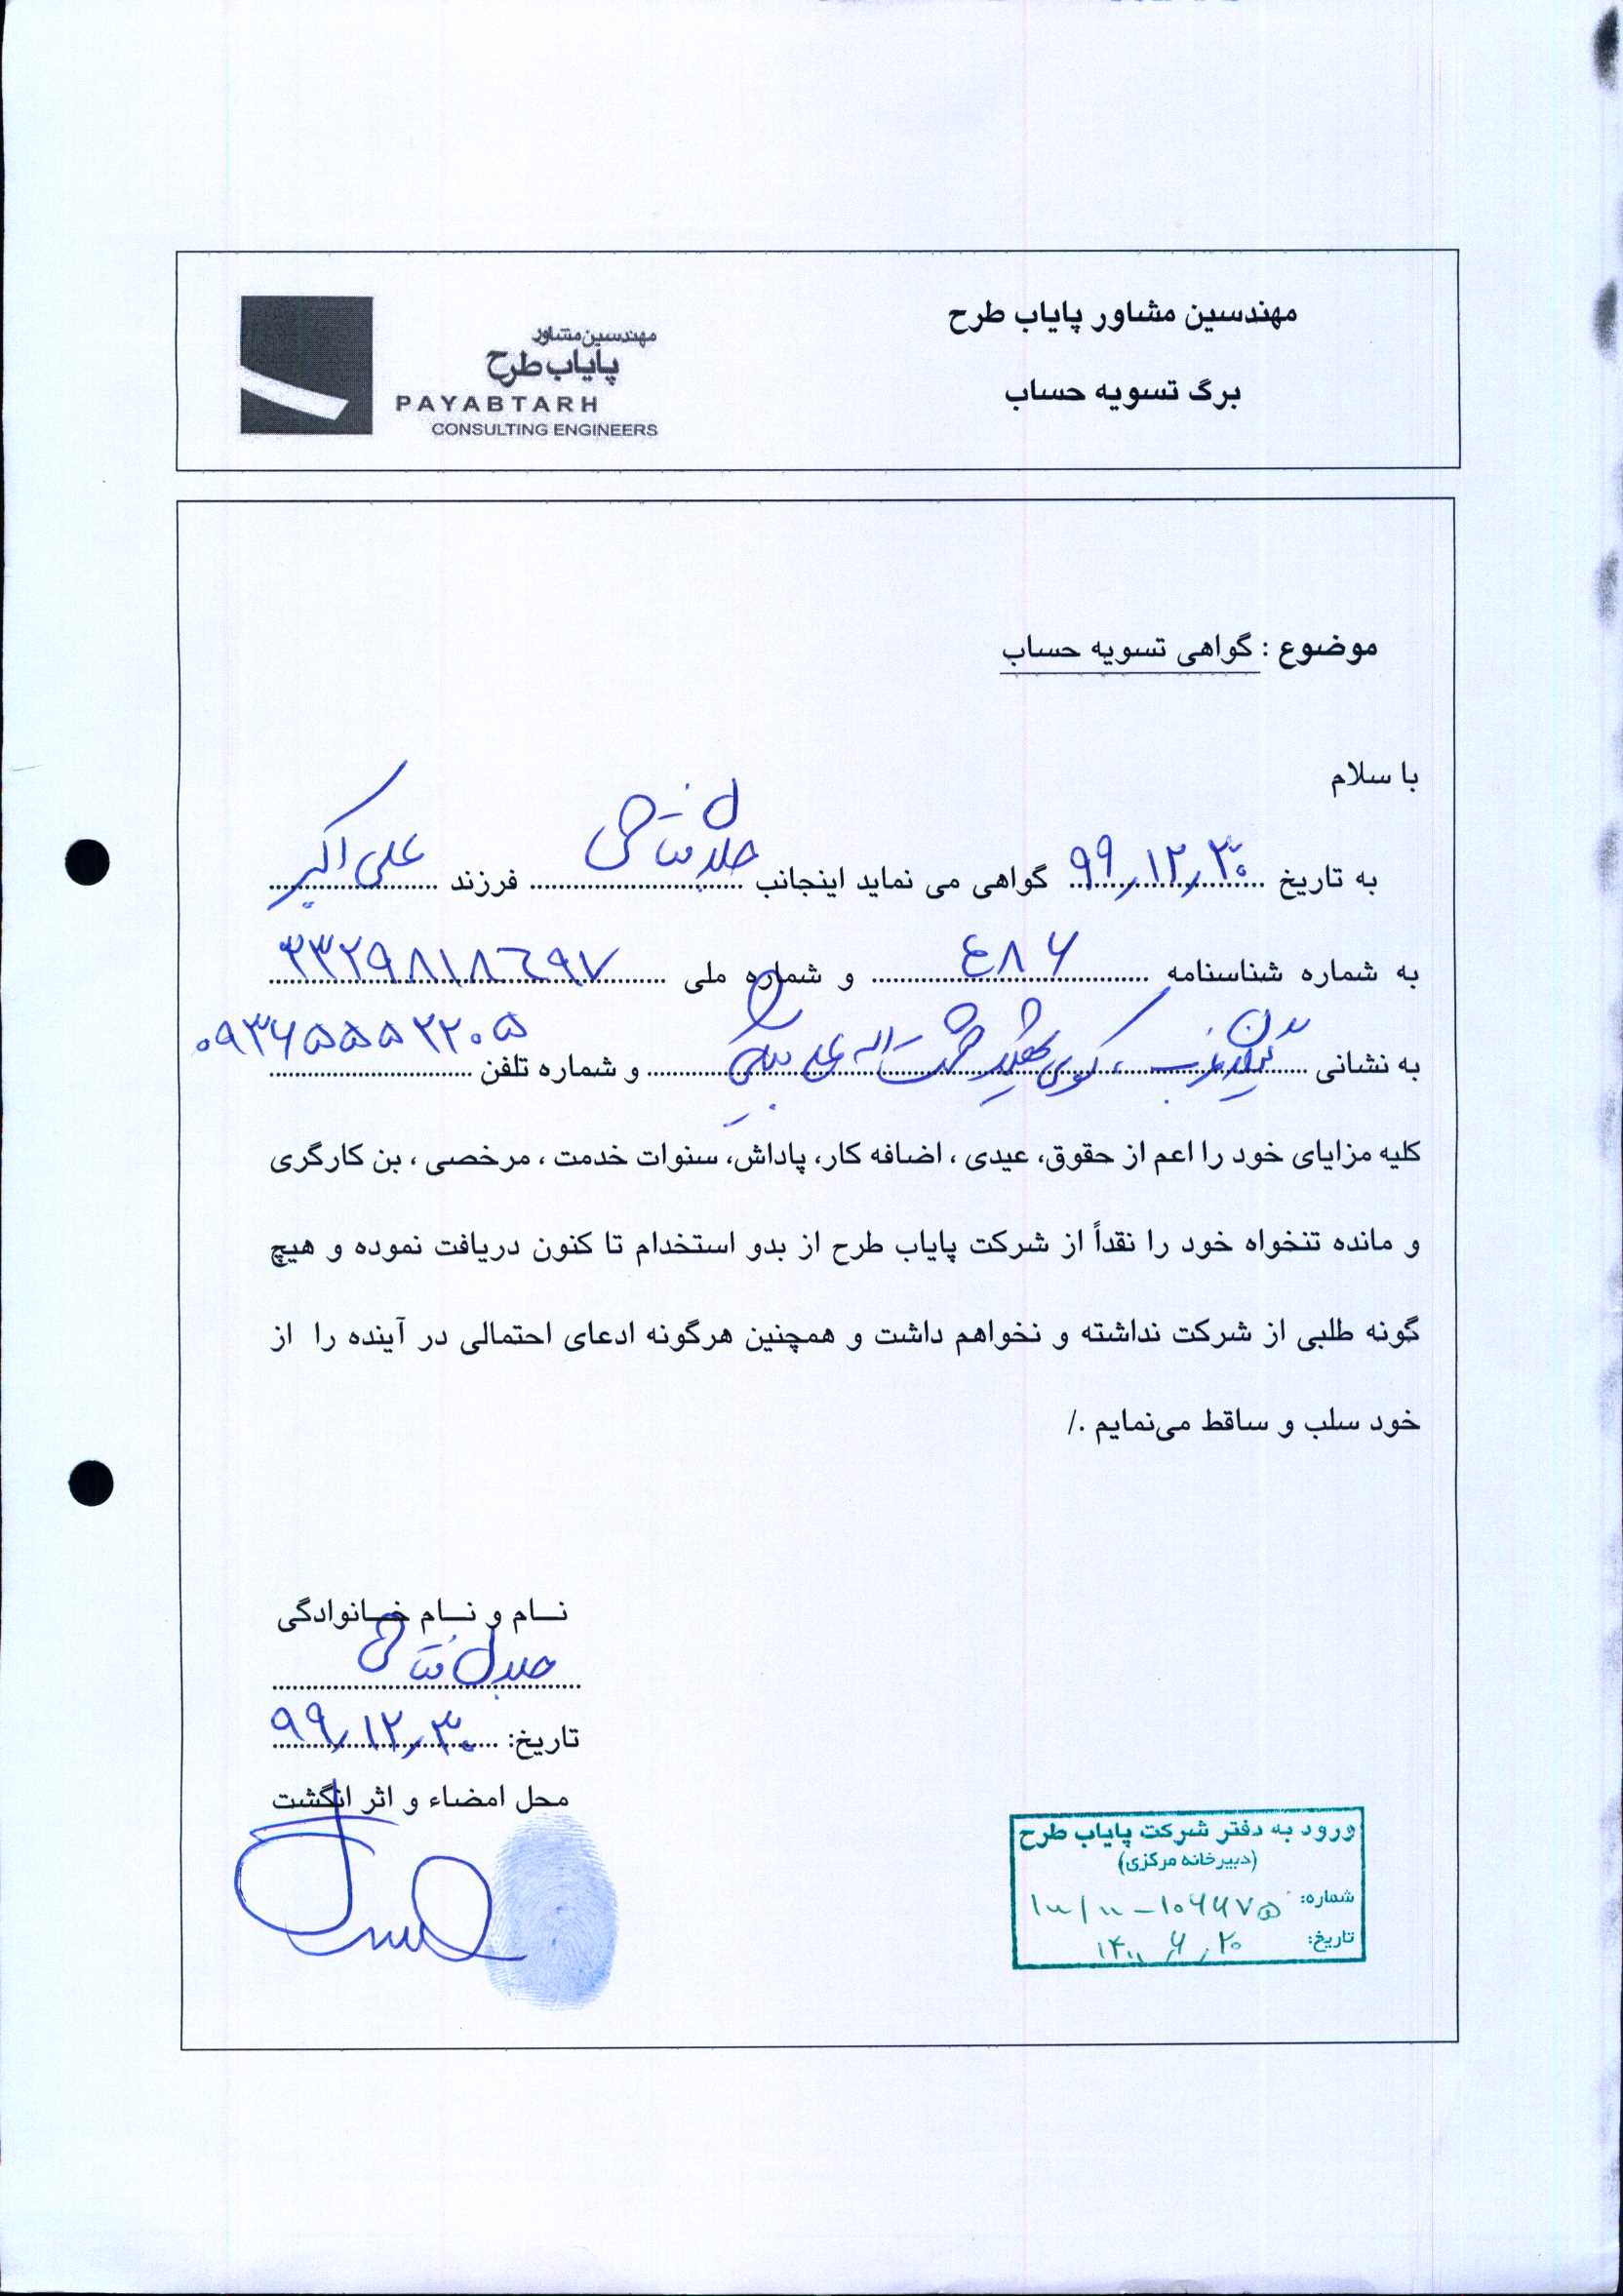 مهندسین مشاور پایاب طرح
برگ تسویه حساب
مهندسین مشاور
پایاب طرح
PAYABTARH
CONSULTING ENGINEERS
موضوع : گواهی تسویه حساب
با سلام
به تاریخ ۹۹,۱۲,۳۰ گواهی می نماید اینجانب جلال فتاحی فرزند علی اکبر
به شماره شناسنامه ۴۸۶ و شماره ملی
به نشانی کوی و شماره تلفن ۰۹۳۶۵۵۵۲۲۰۵
کلیه مزایای خود را اعم از حقوق، عیدی ، اضافه کار، پاداش، سنوات خدمت ، مرخصی ، بن کارگری
و مانده تنخواه خود را نقداً از شرکت پایاب طرح از بدو استخدام تا کنون دریافت نموده و هیچ
گونه طلبی از شرکت نداشته و نخواهم داشت و همچنین هرگونه ادعای احتمالی در آینده را از
خود سلب و ساقط می‌نمایم ./
نــام و نــام خــانوادگی
جلال فتاحی
تاریخ: ۹۹,۱۲,۳۰
محل امضاء و اثر انگشت
ورود به دفتر شرکت پایاب طرح
(دبیرخانه مرکزی)
شماره:
تاریخ: